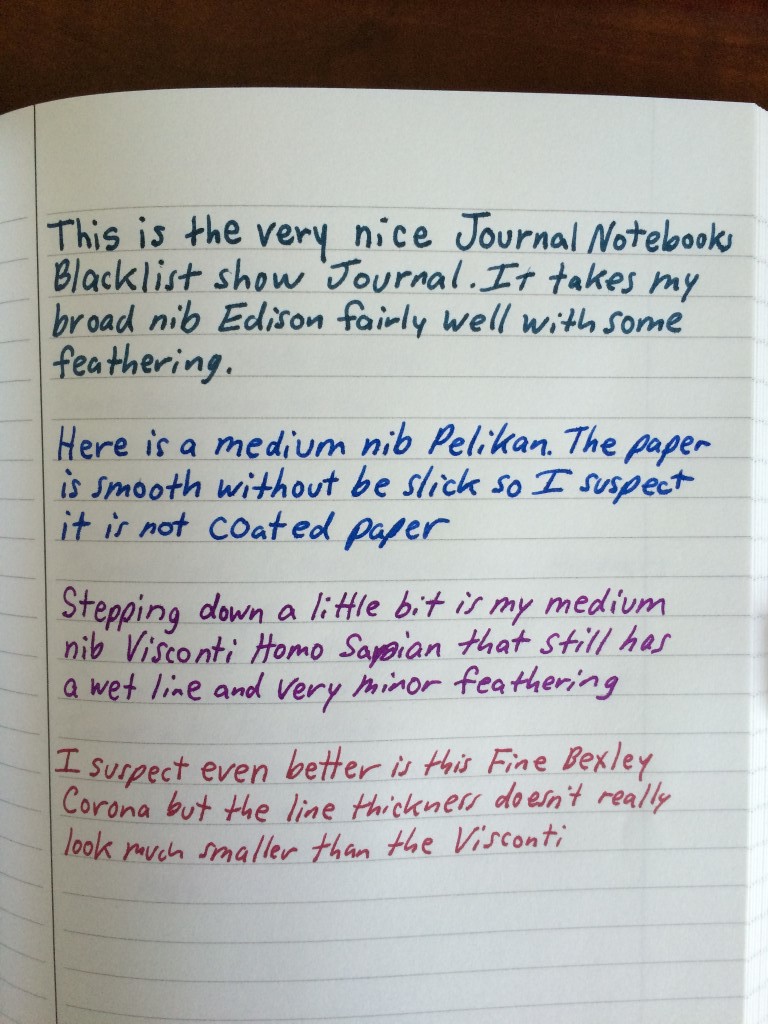 This is the very nice Journal Notebooks
Blacklist show Journal. It takes my
broad nib Edison fairly well with some
feathering.
Here is a medium nib Pelikan. The paper
is smooth without be slick so I suspect
it is not coated paper
Stepping down a little bit is my medium
nib Visconti Homo Sapian that still has
a wet line and very minor feathering
I suspect even better is this Fine Bexley
Corona but the line thickness doesn't really
look much smaller than the Visconti